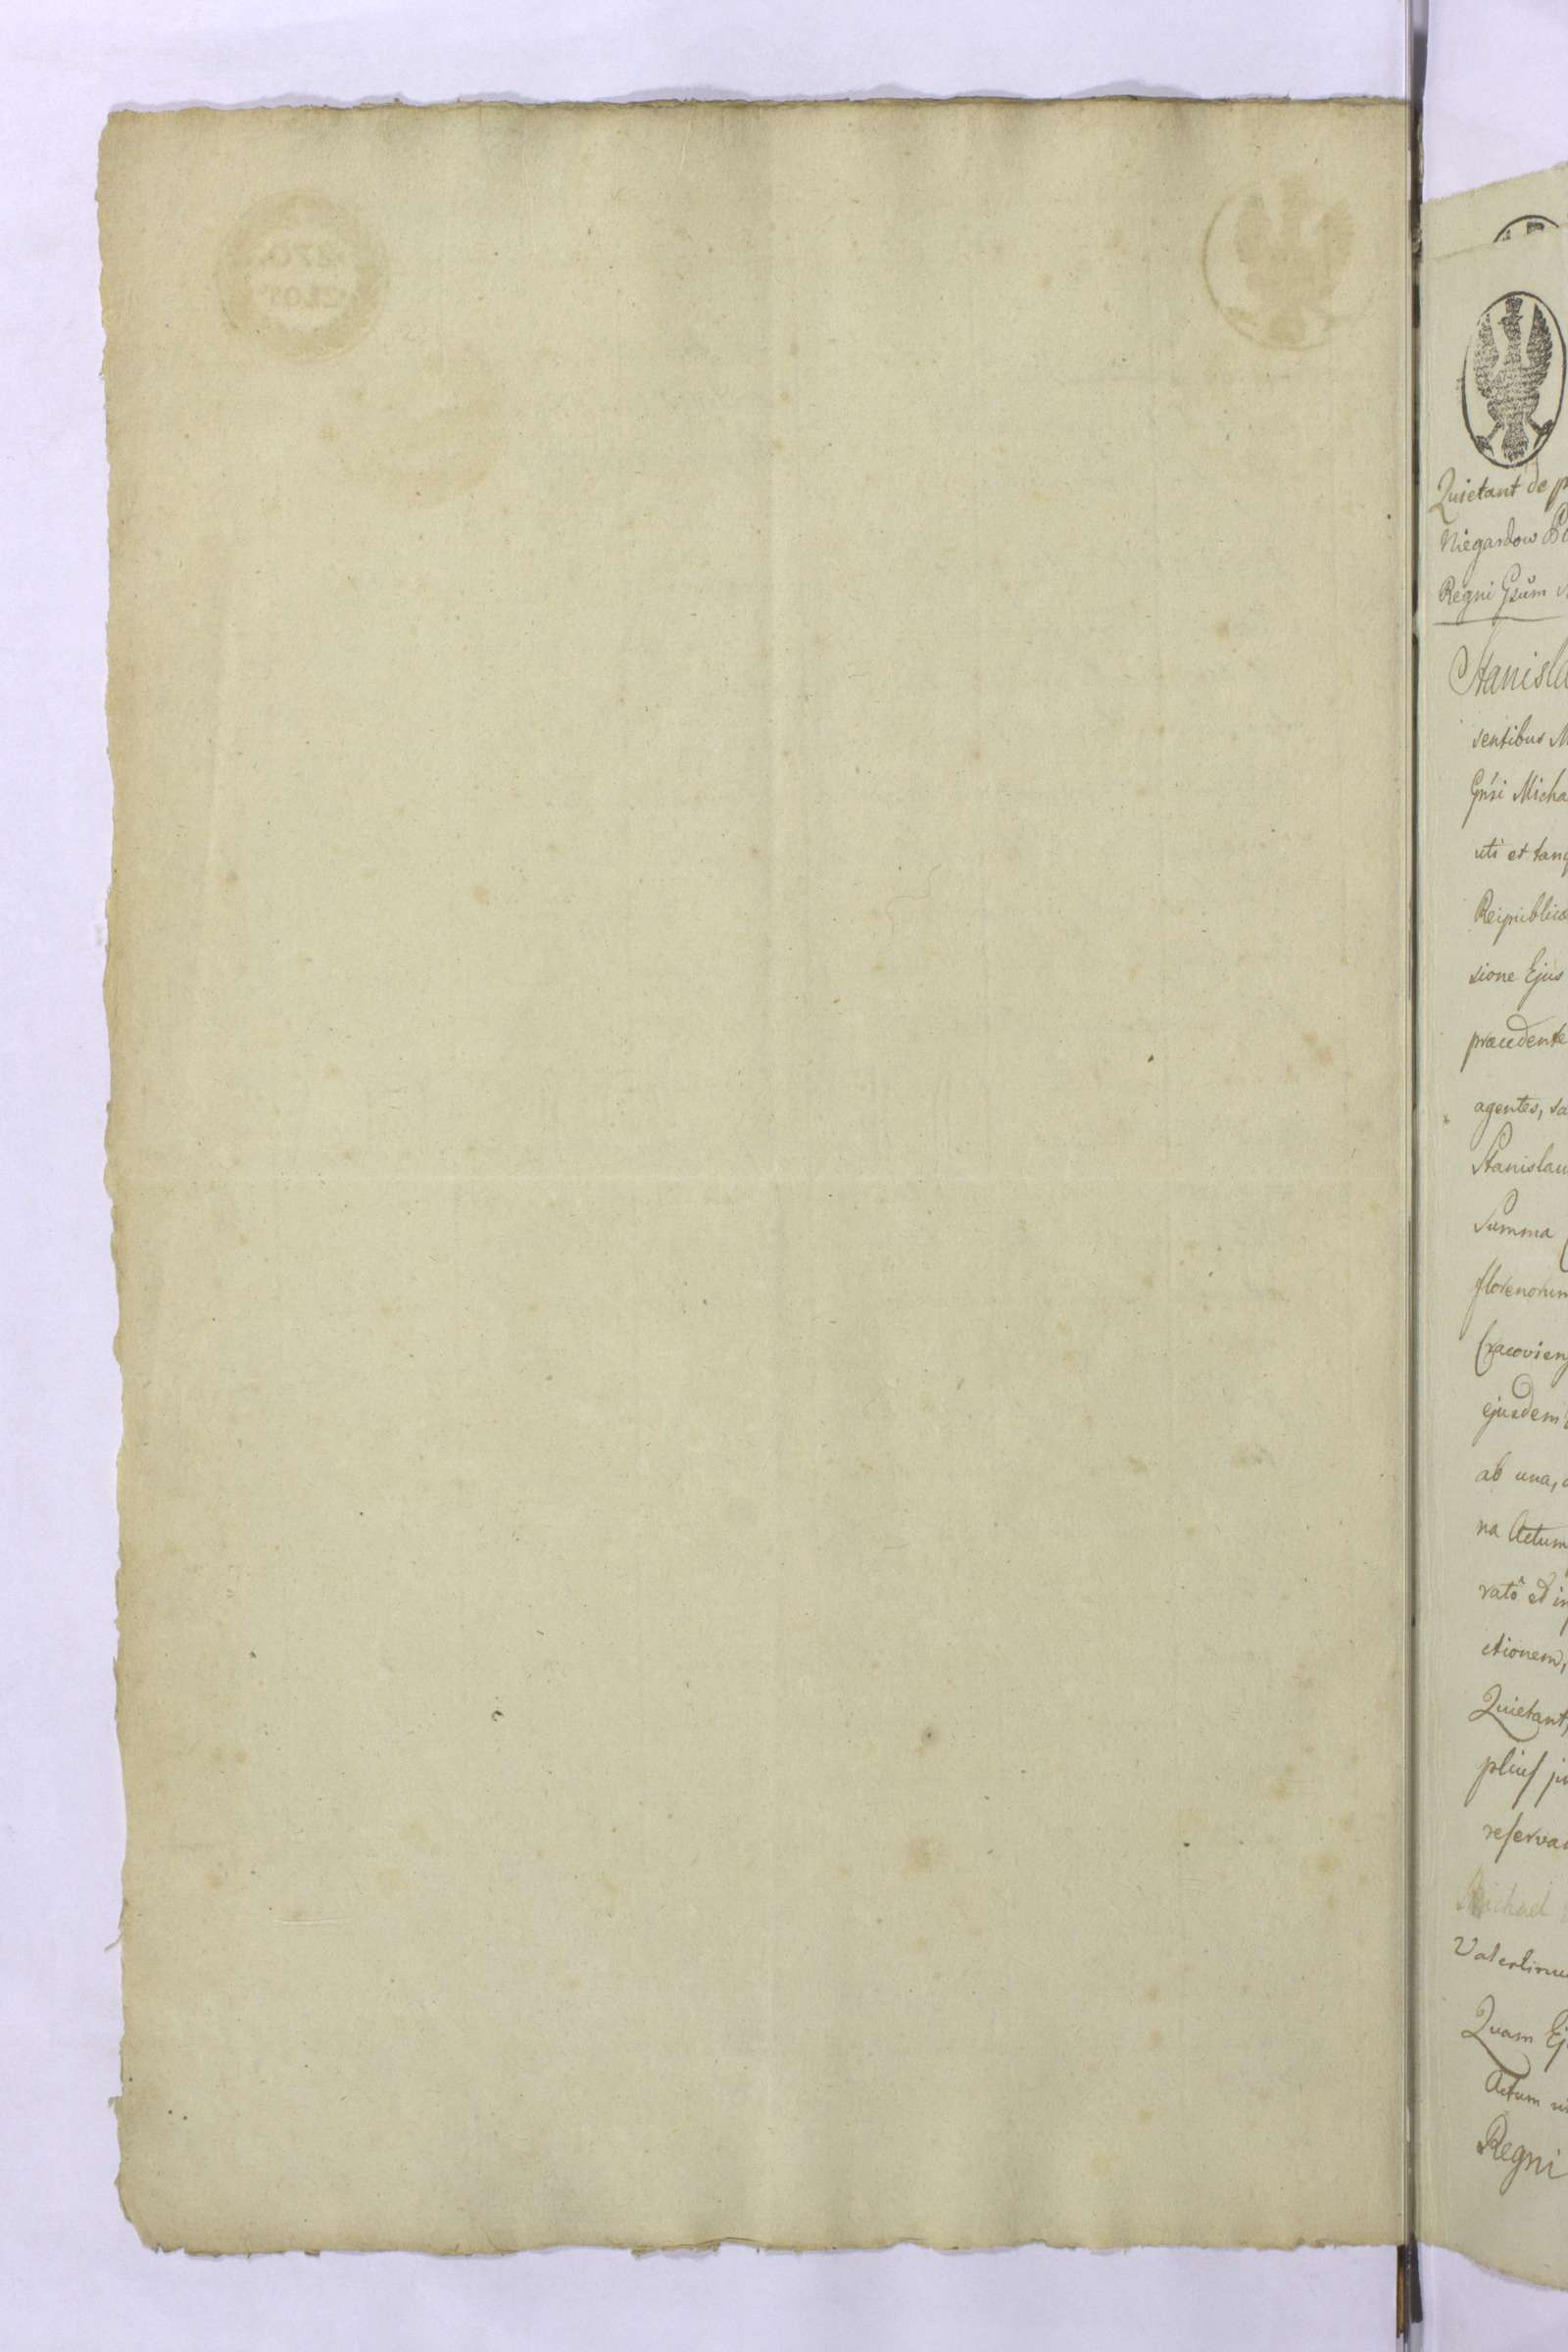 Quietant de
Niegardow
Regni Gsum
Stanisla
sentibus
Gnsi Micha
uti et tanq
Reipublicæ
sione Ejus
præcedente
agentes, sa
Stanislau
Summa
florenorum
Cracovien
ejusdem
ab una,
na Actum
rato et in
ctionem,
Quietant,
plius ju
reserva
Michael
Valentinu
Quam Ej
Actum
Regni